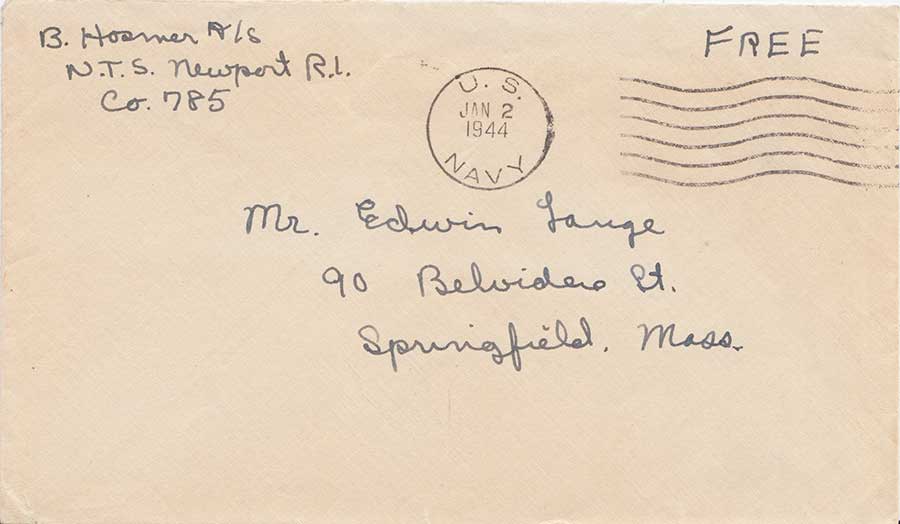 B. Hosmer A/S
N.T.S. Newport R.I.
Co. 785
FREE
U. S.
JAN 2
1944
NAVY
Mr. Edwin Lange
90 Belvidere St.
Springfield, Mass.